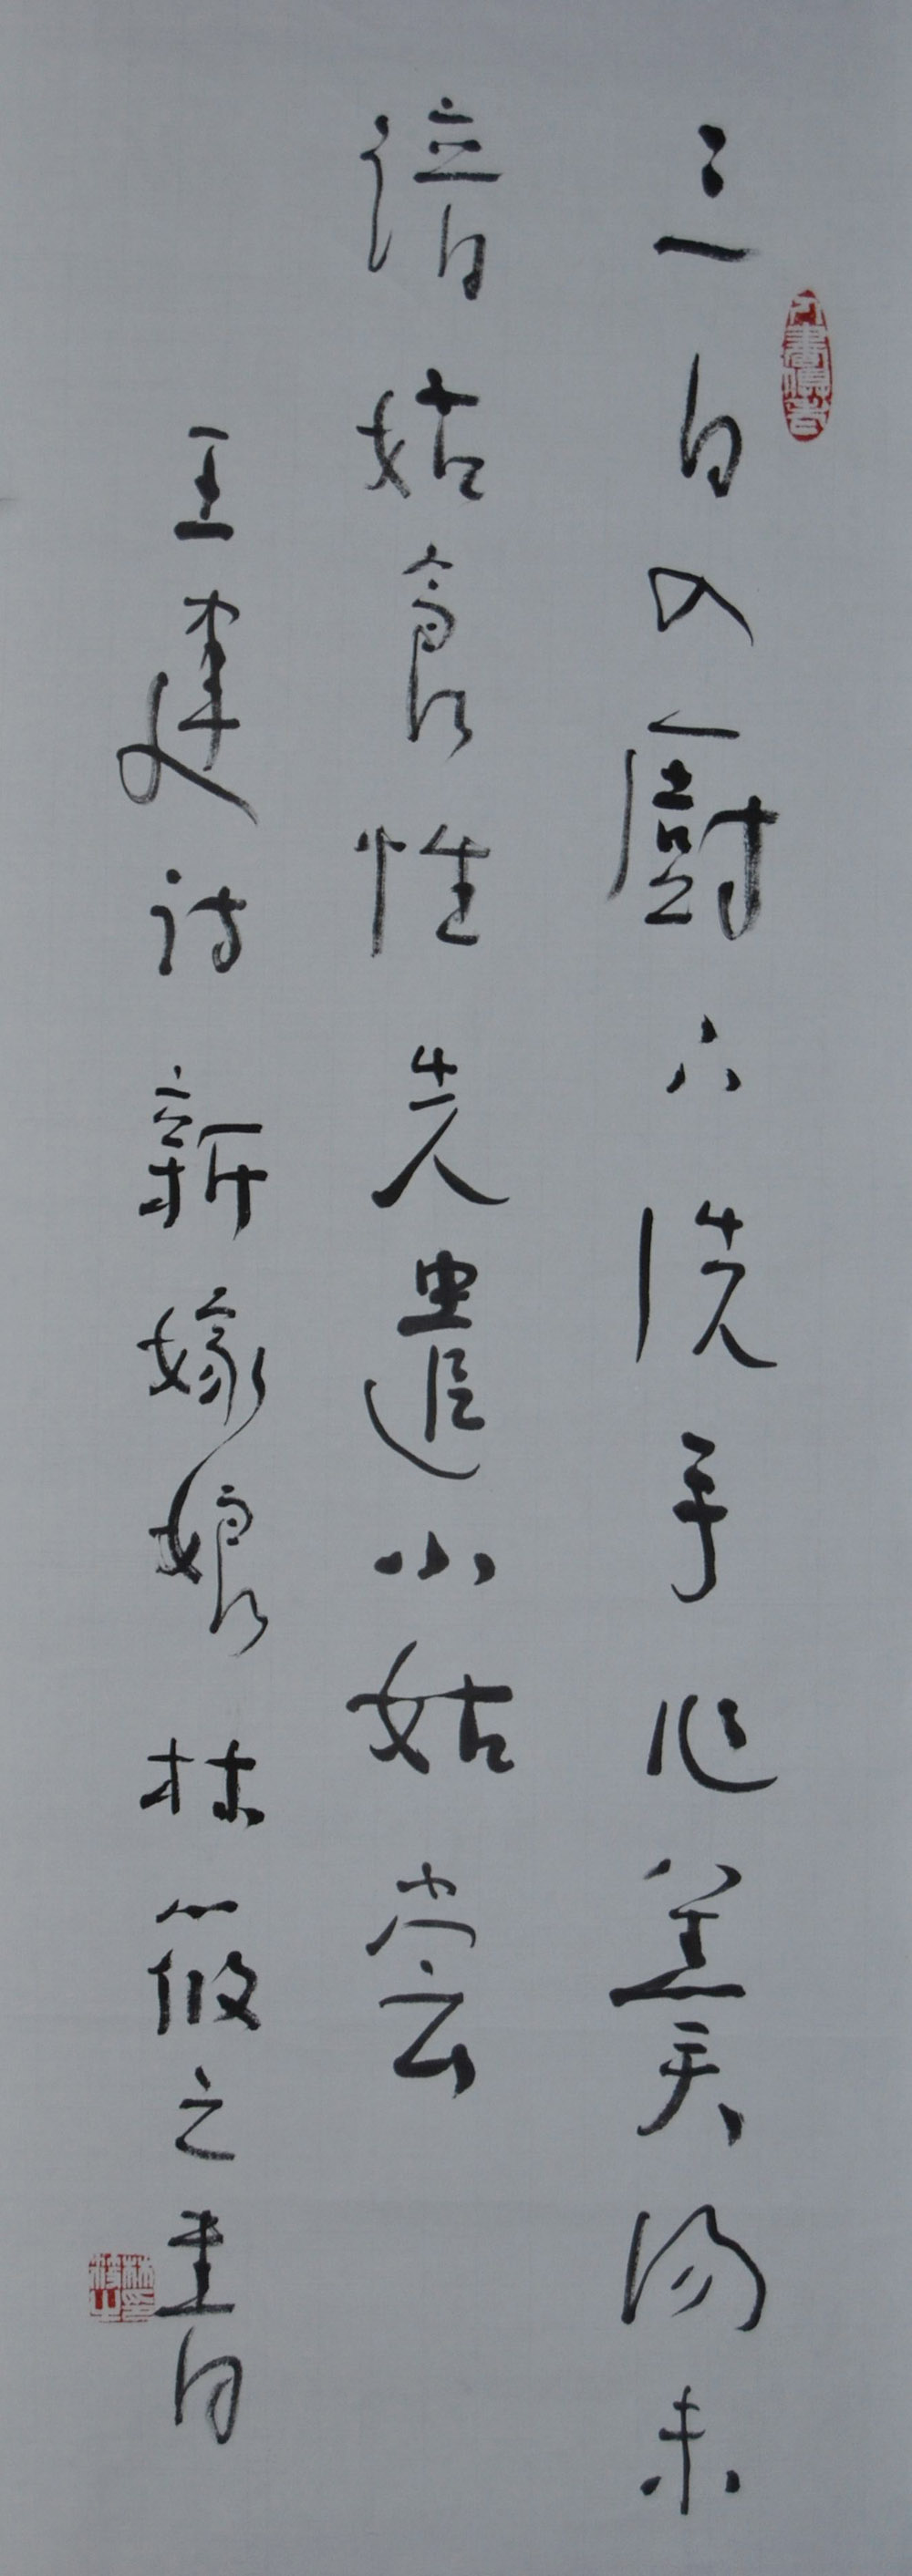 三日入廚下洗手作羹湯未
諳姑食性先遣小姑嘗
王建詩新嫁娘 林筱之書